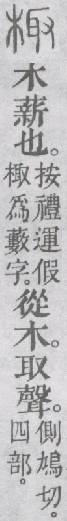 棷
木薪也。
按禮運假
棷爲藪字。
從木。取聲。
側鳩切。
四部。